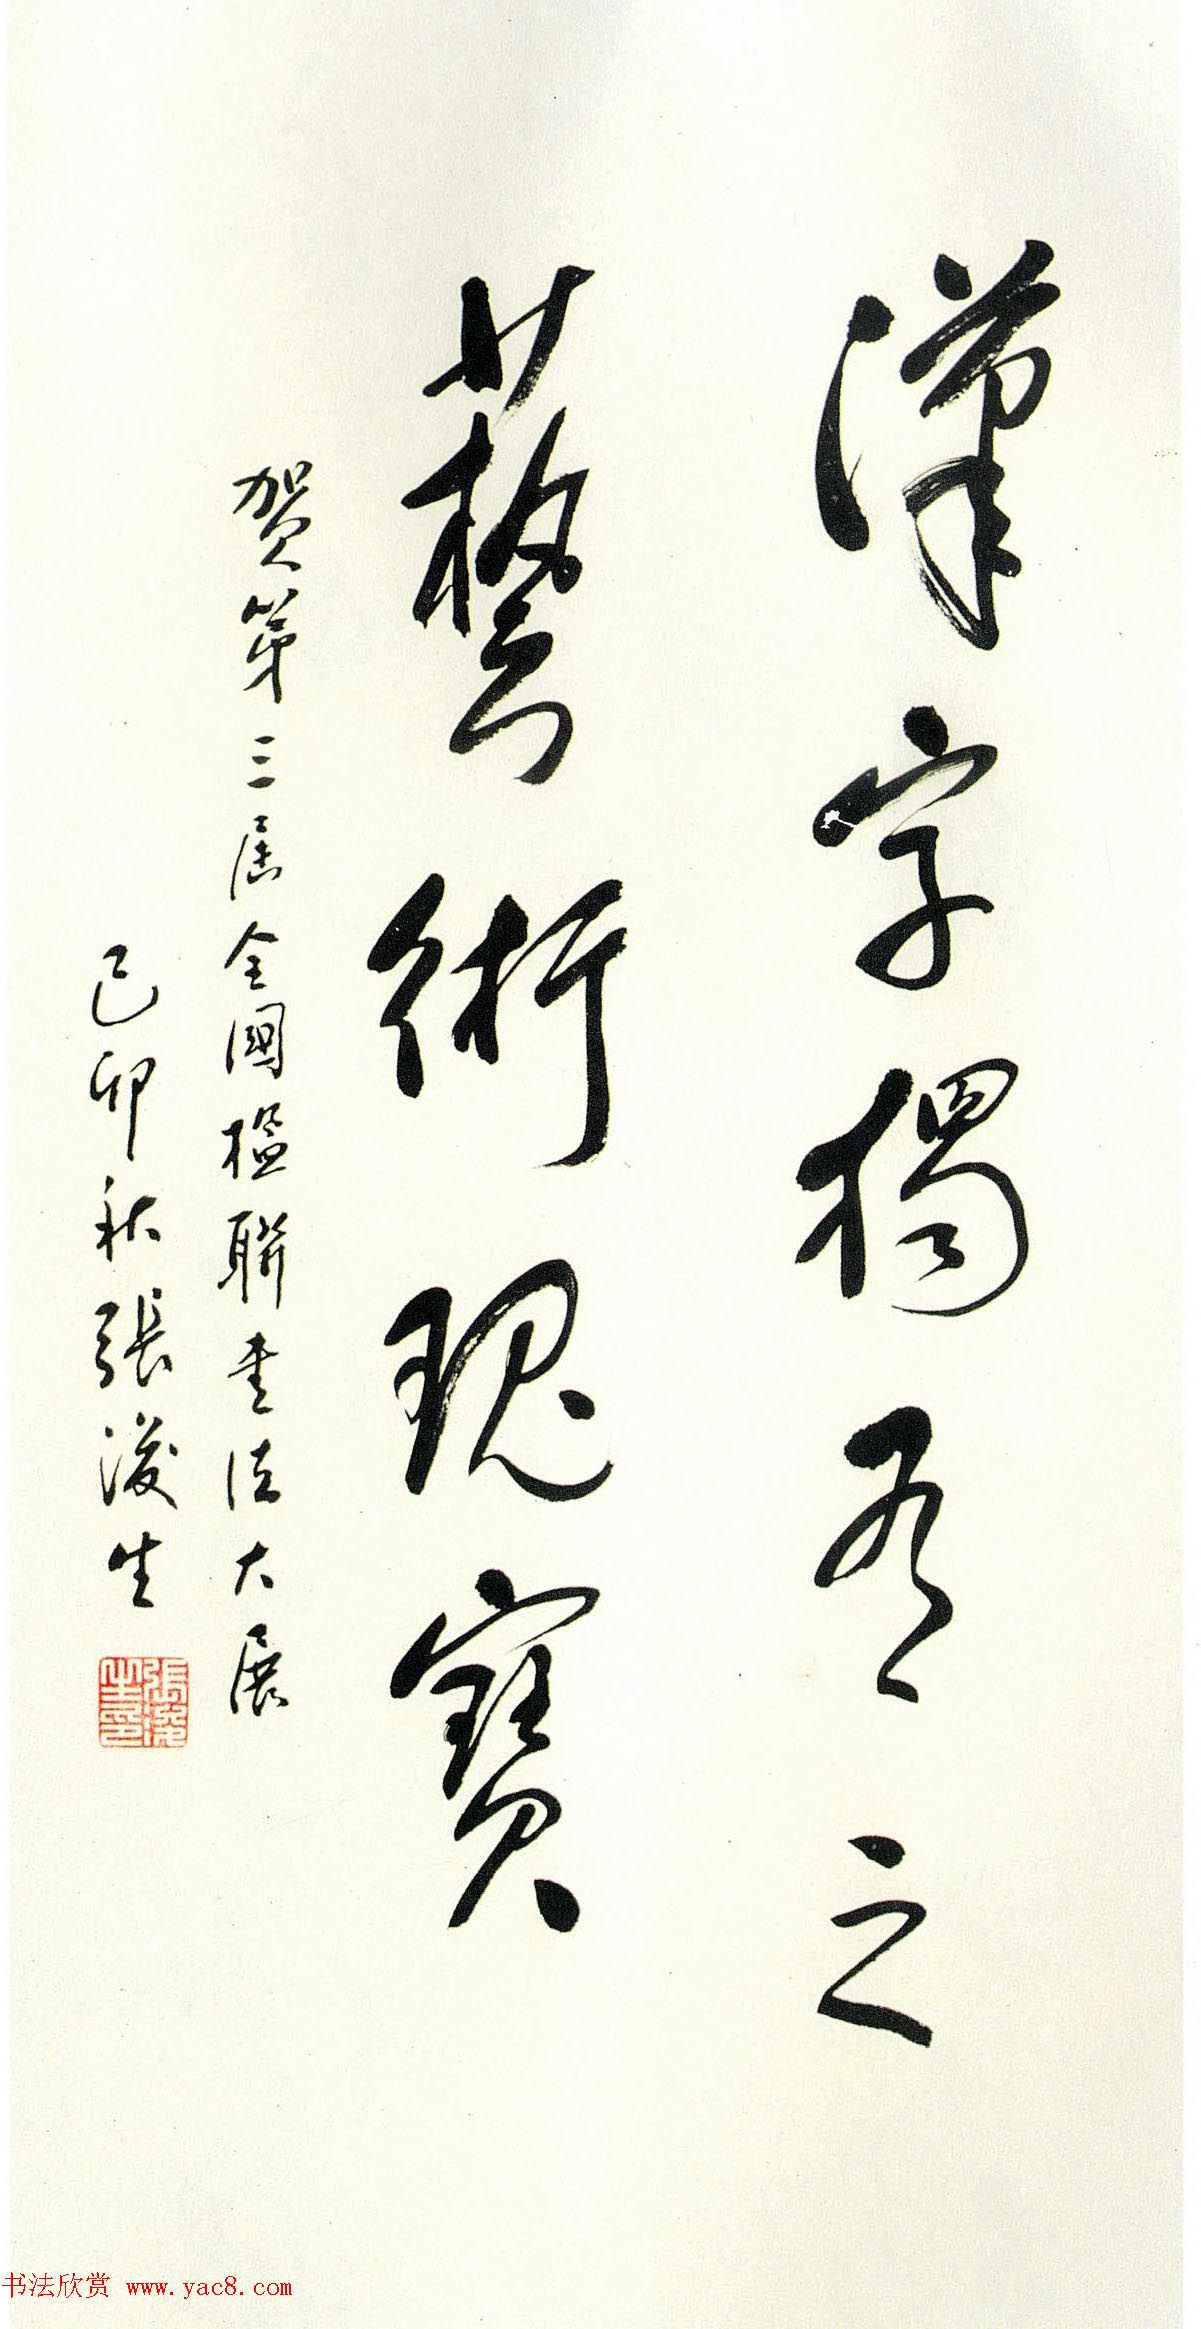 漢字獨有之
藝術瑰寶
贺第三届全國楹聯書法大展
己卯秋張浚生
張浚生印
书法欣赏 www.yac8.com